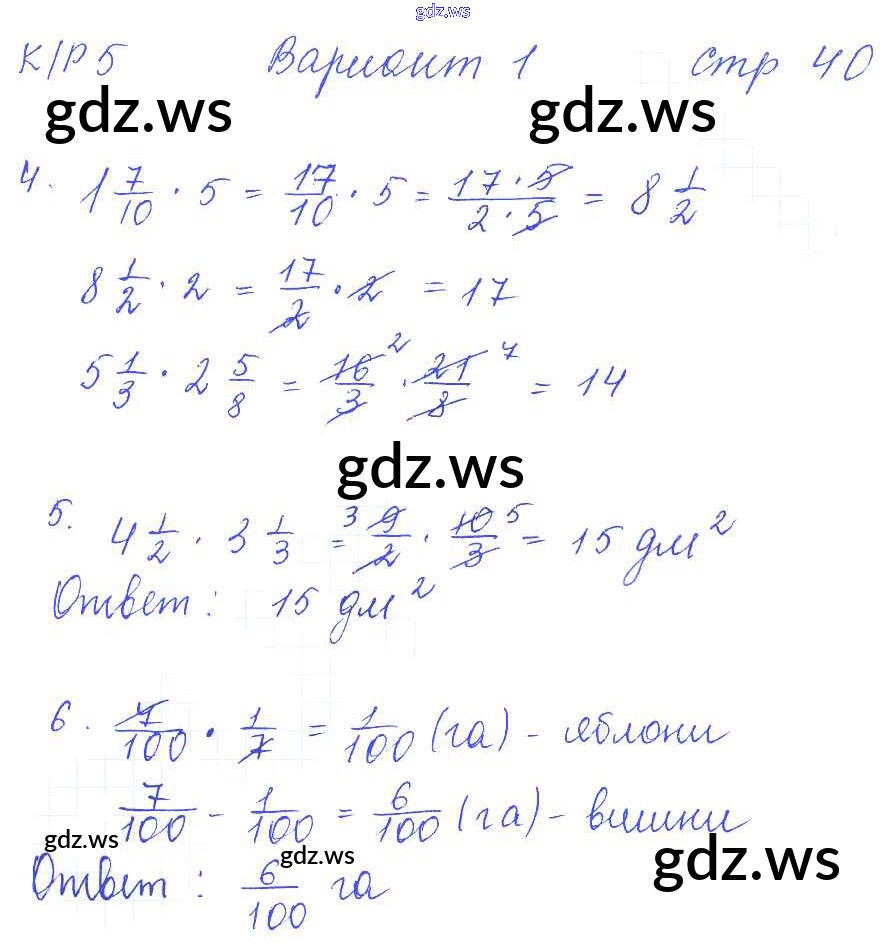 gdz.ws
К/Р 5 Вариант 1 стр 40
gdz.ws gdz.ws
4. 1 7/10 · 5 = 17/10 · 5 = 17 · 5 / 2 · 5 = 8 1/2
8 1/2 · 2 = 17/2 · 2 = 17
5 1/3 · 2 5/8 = 16/3 2 · 21/8 7 = 14
gdz.ws
5. 4 1/2 · 3 1/3 = 3 9/2 · 10/3 5 = 15 дм²
Ответ: 15 дм²
6. 7/100 · 1/7 = 1/100 (га) - яблони
7/100 - 1/100 = 6/100 (га) - вишни
gdz.ws gdz.ws gdz.ws
Ответ: 6/100 га